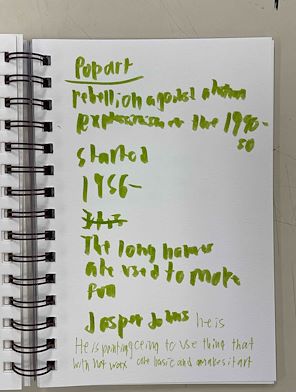 Pop art
rebellion against
expression of the 1940-
50
started
1956-
The long
are used to more
fun
Jasper Johns he is
He is painting to use thing that
with hot wax are basic and makes it art